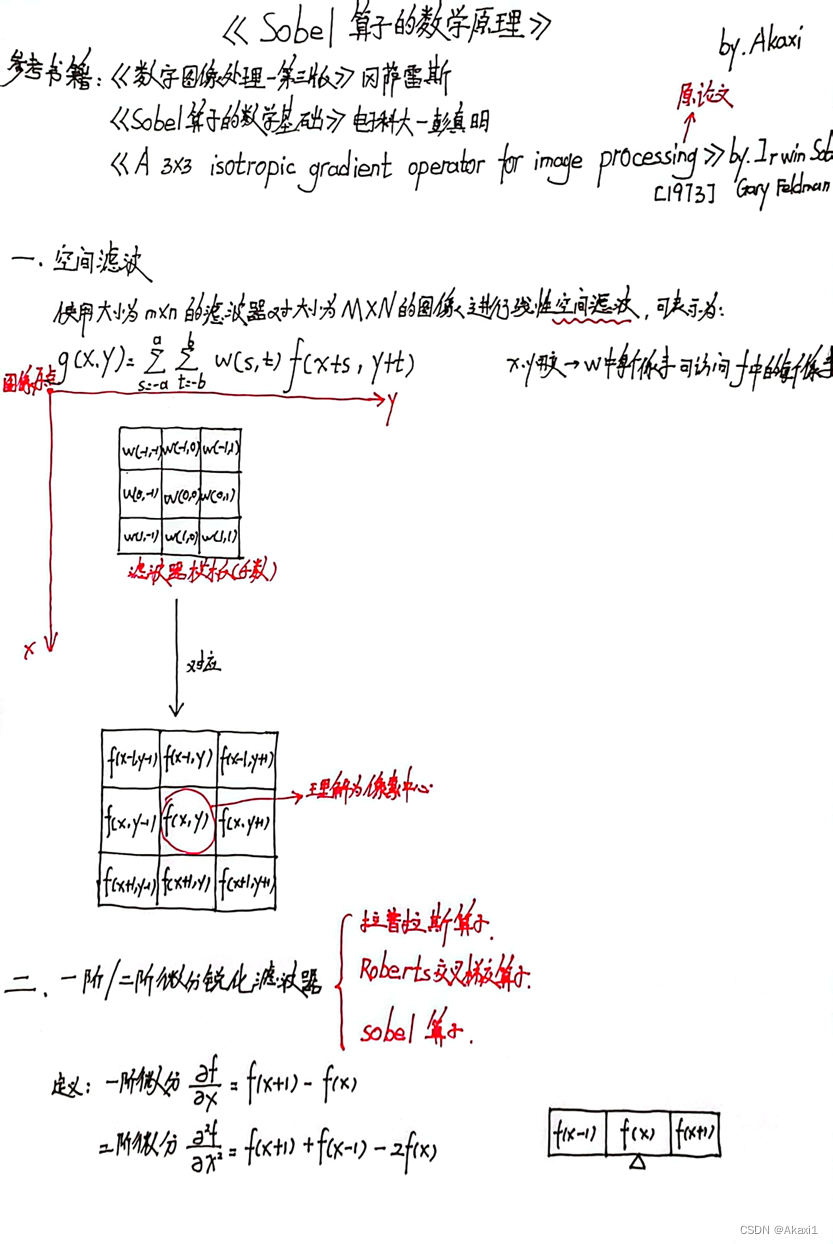 《Sobel 算子的数学原理》
by.Akaxi
参考书籍：《数字图像处理-第三版》冈萨雷斯
原论文
《Sobel算子的数学基础》电子科大-彭真明
《A 3×3 isotropic gradient operator for image processing》by.Irwin Sob
[1973] Gary Feldman
一. 空间滤波
使用大小为m×n的滤波器对大小为M×N的图像进行线性空间滤波，可表示为：
g(x.y)=∑_{s=-a}^{a} ∑_{t=-b}^{b} w(s,t) f(x+s, y+t)
x.y可变→w中每个像素可访问f中的每个像素
图像原点
y
w(-1,-1) w(-1,0) w(-1,1)
w(0,-1) w(0,0) w(0,1)
w(1,-1) w(1,0) w(1,1)
滤波器模板(系数)
x
对应
f(x-1,y-1) f(x-1,y) f(x-1,y+1)
f(x,y-1) f(x,y) f(x,y+1)
理解为像素中心.
f(x+1,y-1) f(x+1,y) f(x+1,y+1)
拉普拉斯算子.
二. 一阶/二阶微分锐化滤波器
Roberts交叉梯度算子.
sobel 算子.
定义：一阶微分 ∂f/∂x = f(x+1) - f(x)
二阶微分 ∂²f/∂x² = f(x+1) + f(x-1) - 2f(x)
f(x-1) f(x) f(x+1)
CSDN @Akaxi1